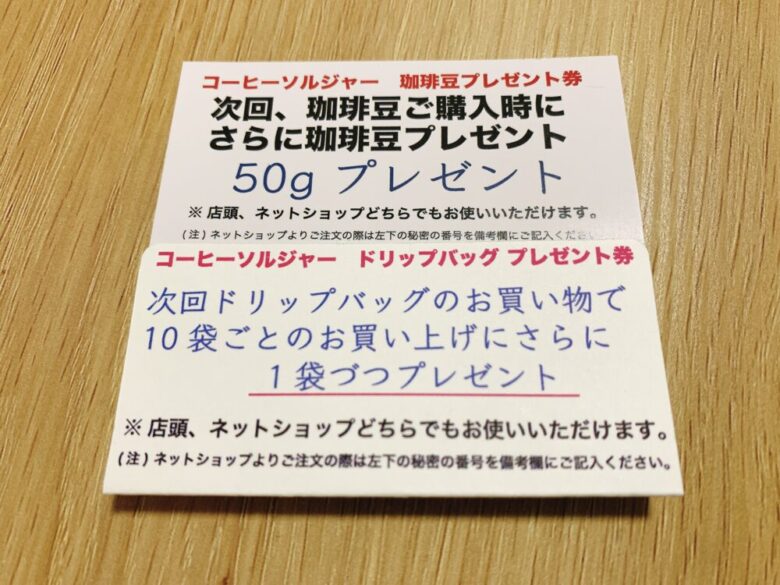 コーヒーソルジャー　珈琲豆プレゼント券
次回、珈琲豆ご購入時に
さらに珈琲豆プレゼント
50g プレゼント
※店頭、ネットショップどちらでもお使いいただけます。
(注)ネットショップよりご注文の際は左下の秘密の番号を備考欄にご記入くださ
コーヒーソルジャー　ドリップバッグ プレゼント券
次回ドリップバッグのお買い物で
10袋ごとのお買い上げにさらに
1袋づつプレゼント
※店頭、ネットショップどちらでもお使いいただけます。
(注)ネットショップよりご注文の際は左下の秘密の番号を備考欄にご記入ください。